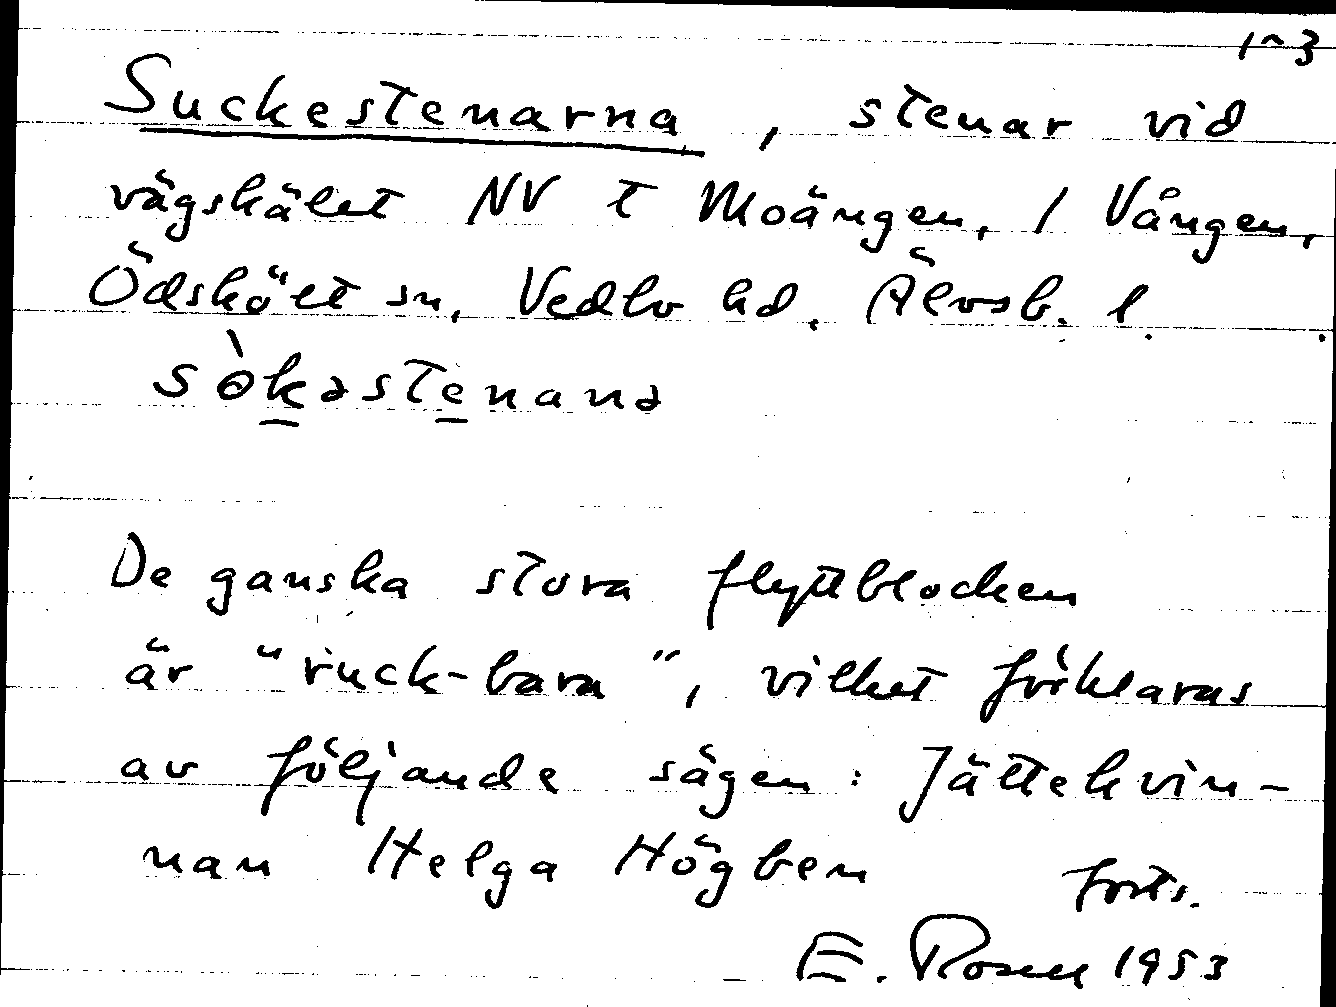 1~3
Suckestenarna, stenar vid
vägskälet NV t Moängen, 1 Vången,
Ödskölt sn, Vedbo hd, Älvsb. l.
sòkəstenanə
De ganska stora flyttblocken
är "ruck-bara", vilket förklaras
av följande sägen: Jättekvin-
nan Helga Högben
forts.
E. Rosell 1953